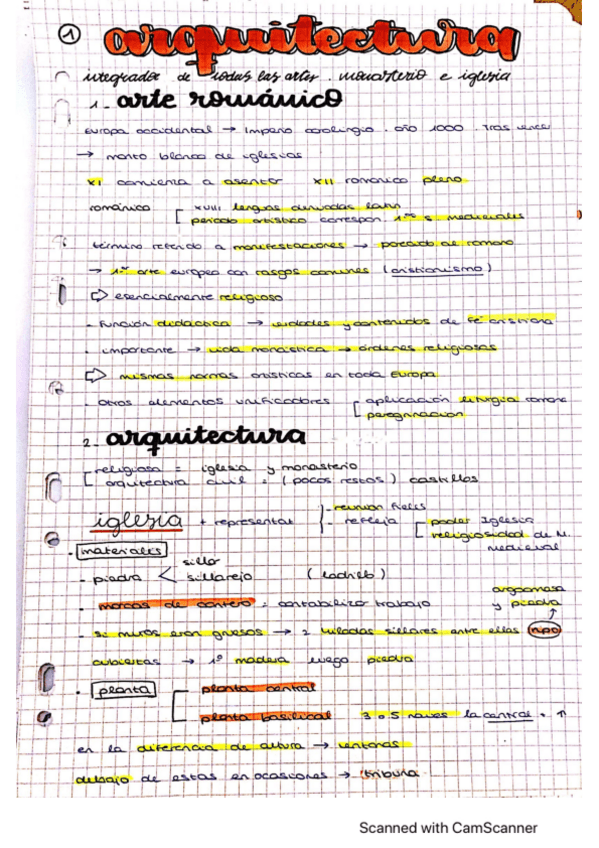 1 arquitectura
integrador de todas las artes. monasterio e iglesia
1- arte románico
Europa occidental → Imperio carolingio. año 1000. Tras vencer
→ manto blanco de iglesias
XI comienza a asentar XII románico pleno
románico [ XVIII lenguas derivadas latín
periodo artístico correspon. 1ros s. medievales
término referido a manifestaciones → parecido al romano
→ 1er arte europeo con rasgos comunes (cristianismo)
⇨ esencialmente religioso
- función didáctica → verdades y contenidos de fé cristiana
- importante → vida monástica → órdenes religiosas
⇨ mismas normas artísticas en toda Europa
- otros elementos unificadores [ aplicación liturgia romana
peregrinación
2- arquitectura
[ religiosa = iglesia y monasterio
arquitectura civil = (pocos restos) castillos
iglesia + representat [ - reunión fieles
- refleja [ poder Iglesia
religiosidad de M.
medieval
· materiales
- piedra < sillar
sillarejo (ladrillo)
- marcas de cantero = contabilizo trabajo
argamasa
y piedra
↑
- Si muros eran gruesos → 2 hiladas sillares entre ellas ripio
cubiertas → 1º madera luego piedra
· planta [ planta central
planta basilical 3 o 5 naves la central + ↑
en la diferencia de altura → ventanas
debajo de estas en ocasiones → tribuna
Scanned with CamScanner